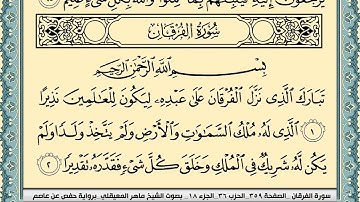 يُرْجَعُونَ إِلَيْهِ فَيُنَبِّئُهُم بِمَا عَمِلُوا۟ وَٱللَّهُ بِكُلِّ شَىْءٍ عَلِيمٌۢ ٦٤
سُورَةُ الْفُرْقَانِ
بِسْمِ ٱللَّهِ ٱلرَّحْمَٰنِ ٱلرَّحِيمِ
تَبَارَكَ ٱلَّذِى نَزَّلَ ٱلْفُرْقَانَ عَلَىٰ عَبْدِهِۦ لِيَكُونَ لِلْعَٰلَمِينَ نَذِيرًا
١ ٱلَّذِى لَهُۥ مُلْكُ ٱلسَّمَٰوَٰتِ وَٱلْأَرْضِ وَلَمْ يَتَّخِذْ وَلَدًا وَلَمْ
يَكُن لَّهُۥ شَرِيكٌ فِى ٱلْمُلْكِ وَخَلَقَ كُلَّ شَىْءٍ فَقَدَّرَهُۥ تَقْدِيرًا ٢
سورة الفرقان _ الصفحة ٣٥٩_ الحزب ٣٦_ الجزء ١٨_ بصوت الشيخ ماهر المعيقلي_ برواية حفص عن عاصم